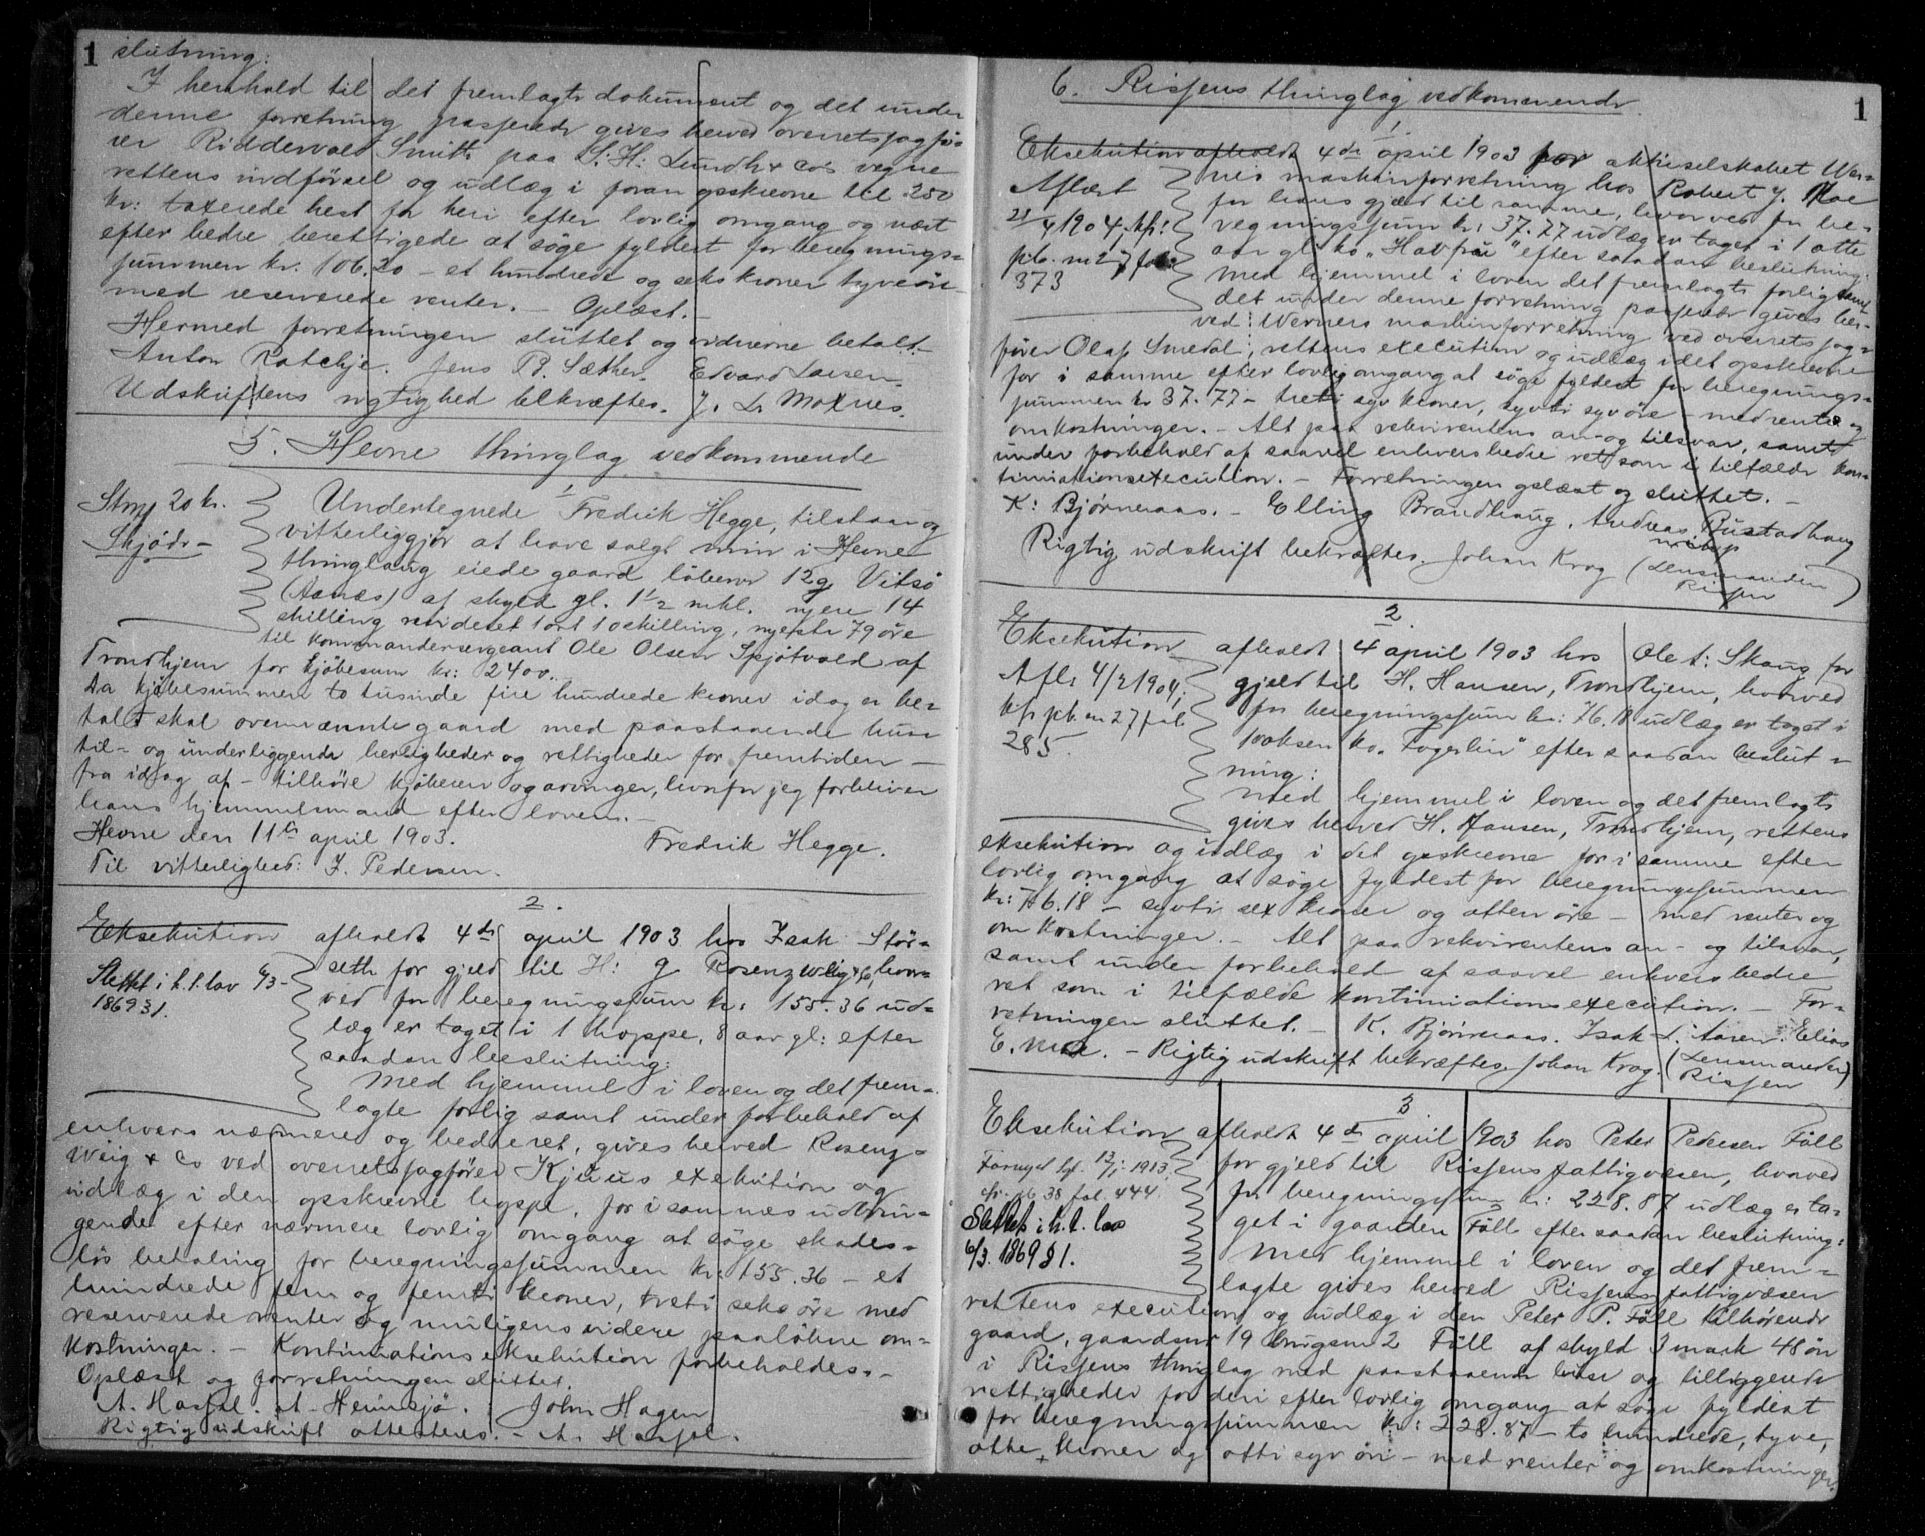 1 slutning:
I henhold til det fremlagte dokument og det under
denne forretning passerede gives herved overretssagfö-
rer Riddervold Smith paa S: H: Lundh & Co's vegne
rettens indförsel og udlæg i foran opskrevne til 250
kr: taxerede hest for heri efter lovlig omgang og næst
efter bedre berettigede at söge fyldest for beregnings-
summen kr: 106,20 – et hundrede og seks kroner tyve öre
med reserverede renter. – Oplæst. –
Hermed forretningen sluttet og vidnerne betalt.
Anton Ratchje. Jens P. Sæther. Edvard Larsen.
Udskriftens rigtighed bekræftes. J. Moxnes.
5. Hevne thinglag vedkommende
1.
Stmp 20 kr.
Skjöde –
Undertegnede Fredrik Hegge, tilstaar og
vitterliggjör at have solgt min i Hevne
thinglaug eiede gaard löbenr 12g Vitsö
(Aanes) af skyld gl. 1½ mkl. nyere 14
skilling revideret 1 ort 10 skilling, nyeste 79 öre
til kommandersergeant Ole Olsen Skjötvold af
Trondhjem for kjöbesum kr: 2400.
Da kjöbesummen to tusinde fire hundrede kroner idag er be-
talt skal ovennævnte gaard med paastaaende huse
til- og underliggende herligheder og rettigheder for fremtiden –
fra idag af – tilhöre kjöberen og arvinger, hvorfor jeg forbliver
hans hjemmelsmand efter loven. –
Hevne den 11te april 1903. Fredrik Hegge.
Til vitterlighed: J. Pedersen.
2.
Eksekution afholdt 4de april 1903 hos Isak Stör-
Slettet i h. t. lov 6/3-
1869 § 1.
seth for gjeld til H: g Rosenzweig & Co, hvor-
ved for beregningssum kr: 155.36 ud-
læg er taget i 1 hoppe, 8 aar gl: efter
saadan beslutning:
Med hjemmel i loven og det frem-
lagte forlig samt under forbehold af
enhvers nærmere og bedre ret, gives herved Rosenz-
weig & Co ved overretssagförer Kjuus exekution og
udlæg i den opskrevne hoppe, for i sammes udbrin-
gende efter nærmere lovlig omgang at söge skades-
lös betaling for beregningssummen kr: 155.36 – et
hundrede fem og femti kroner, treti seks öre med
reserverede renter og muligens videre paalöbne om-
kostninger. – Kontinuationseksekution forbeholdes. –
Oplæst og forretningen sluttet.
A. Hasfal. A. Heimsjö. John Hagen
Rigtig udskrift attesteres. – A. Hasfal.
6. Rissens thinglag vedkommende 1
1.
Eksekution afholdt 4de april 1903 for aktieselskabet Wer-
Aflæst
4 1904. kfr:
ptb. nr 27 fol.
373
ners maskinforretning hos Robert J. Moe
for hans gjæld til samme, hvorved for be-
regningssum kr: 37.77 udlæg er taget i 1 otte
aar gl ko "Havfru" efter saadan beslutning:
Med hjemmel i loven det fremlagte forlig samt
det under denne forretning passerede gives her-
ved: Werners maskinforretning ved overretssag-
förer Olaf Smedal, rettens execution og udlæg i det opskrevne
for i samme efter lovlig omgang at söge fyldest for beregnings-
summen kr 37.77 – treti syv kroner, sytti syv öre – med renter og
omkostninger. – Alt paa rekvirentens an- og tilsvar, samt
under forbehold af saavel enhvers bedre ret som i tilfælde kon-
tinuationsexecution. – Forretningen oplæst og sluttet. –
K: Bjørneraas. – Elling Brandhaug. Andreas Rustadhaug
Rigtig udskrift bekræftes. Johan Krog (Lensmanden
Rissen)
2.
Eksekution afholdt 4 april 1903 hos Ole t: Skaug for
Afl: 4/2 1904,
kfr pb. nr 27 fol.
285.
gjeld til H. Hansen, Trondhjem, hvorved
for beregningssum kr: 76.18 udlæg er taget i
1 voksen ko "Fagerlin" efter saadan beslut-
ning:
Med hjemmel i loven og det fremlagte
gives herved H. Hansen, Trondhjem, rettens
eksekution og udlæg i det opskrevne for i samme efter
lovlig omgang at söge fyldest for beregningssummen
kr: 76.18 – sytti sex kroner og atten öre – med renter og
omkostninger. – Alt paa rekvirentens an- og tilsvar,
samt under forbehold af saavel enhvers bedre
ret som i tilfælde kontinuationsexecution. – For-
retningen sluttet. – K. Bjørneraas. Isak L: Aasen. Elias
E. Moe. – Rigtig udskrift bekræftes Johan Krog. (Lensmanden)
Rissen
3.
Eksekution afholdt 4de april 1903 hos Peter Pedersen Föll
Fornyet lyst 13/1 1913,
cfr. pb 38 fol. 444.
Slettet i h. t. lov
6/3. 1869 § 1.
for gjeld til Rissens fattigvæsen, hvorved
for beregningssum kr: 228.87 udlæg er ta-
get i gaarden Föll efter saadan beslutning:
Med hjemmel i loven og det frem-
lagte gives herved Rissens fattigvæsen
rettens execution og udlæg i den Peter P. Föll tilhörende
gaard, gaardsnr 19 brugsnr 2 Föll af skyld 3 mark 48 öre
i Rissens thinglag med paastaaende huse og tilliggende
rettigheder for deri efter lovlig omgang at söge fyldest
for beregningssummen kr: 228.87 – to hundrede, tyve,
otte kroner og otti syv öre – med renter og omkostninger.